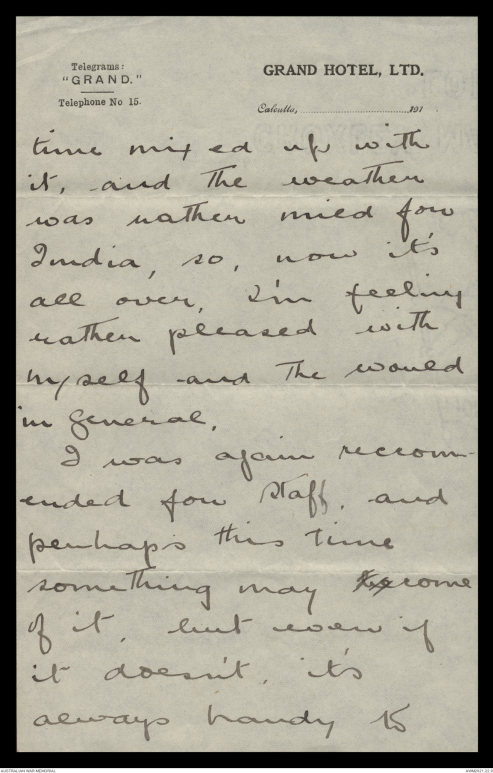 Telegrams:
"GRAND."
Telephone No 15.
GRAND HOTEL, LTD.
Calcutta, 191
time mixed up with
it, and the weather
was rather mild for
India, so, now it's
all over, I'm feeling
rather pleased with
myself and the would
in general.
I was again recomm-
ended for Staff, and
perhaps this time
something may come
of it, but even if
it doesn't, it's
always handy to
AUSTRALIAN WAR MEMORIAL